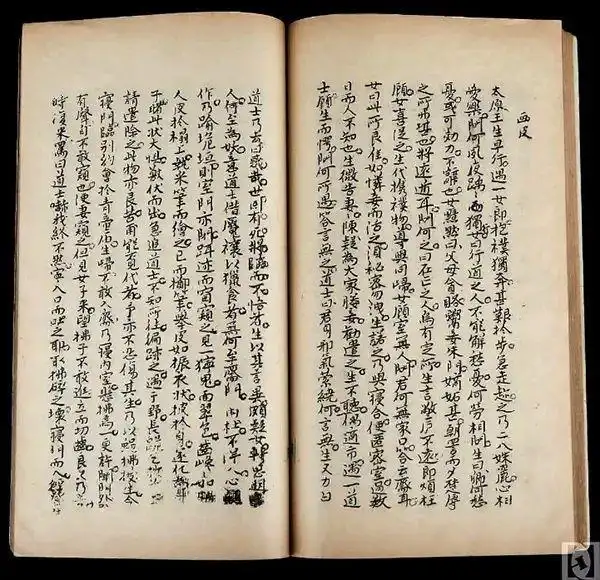 画皮
太原王生早行遇一女郎抱襆獨奔甚艱於步急走趁之乃二八姝麗心相
愛樂問何夙夜踽踽獨女曰行道之人不能解愁憂何勞相問生曰卿何愁
憂或可効力不辭也女黯然曰父母貪賂鬻妾朱門嫡妬甚朝詈而夕楚辱
之所弗堪也將遠遁耳問何之曰在亡之人烏有定所生言敝廬不遠即煩枉
顧女喜從之生代携襆物導與同歸女顧室無人問君何無家口答云齋耳
女曰此所良佳如憐妾而活之須秘密勿洩生諾之乃與寢合使匿密室過數
日而人不知也生微告妻陳疑為大家媵妾勸遣之生不聽偶適市遇一道
士顧生而愕問何所遇答言無之道士曰君身邪氣縈繞何言無生又力白
道士乃去曰惑哉世固有死將臨而不悟者生以其言異頗疑女轉思明
人何至為妖意道士借魘禳以獵食者無何至齋門門內杜不得入心
作乃踰垝垣則室門亦閉躡迹而窗窺之見一獰鬼面翠色齒巉巉如
人皮於榻上執采筆而繪之已而擲筆舉皮如振衣狀披於身遂化為
子睹此狀大懼獸伏而出急追道士不知所往徧跡之遇于野長跪
請遣除之此物亦良苦甫能覓代者予亦不忍傷其生乃以蠅拂授生令
寢門臨別約會於青帝廟生歸不敢入齋乃寢內室懸拂焉一更許聞門外
有聲自不敢窺也使妻窺之但見女子來望拂子不敢進立而切齒良久乃去
時復來罵曰道士嚇我終不然寧入口而吐之耶取拂碎之壞寢門而入